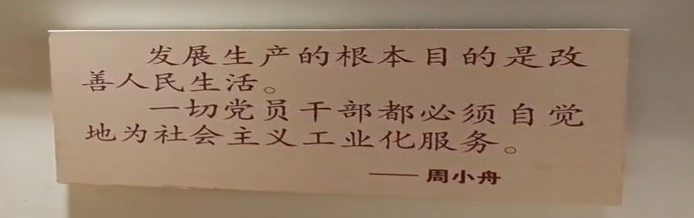 发展生产的根本目的是改
善人民生活。
一切党员干部都必须自觉
地为社会主义工业化服务。
——周小舟